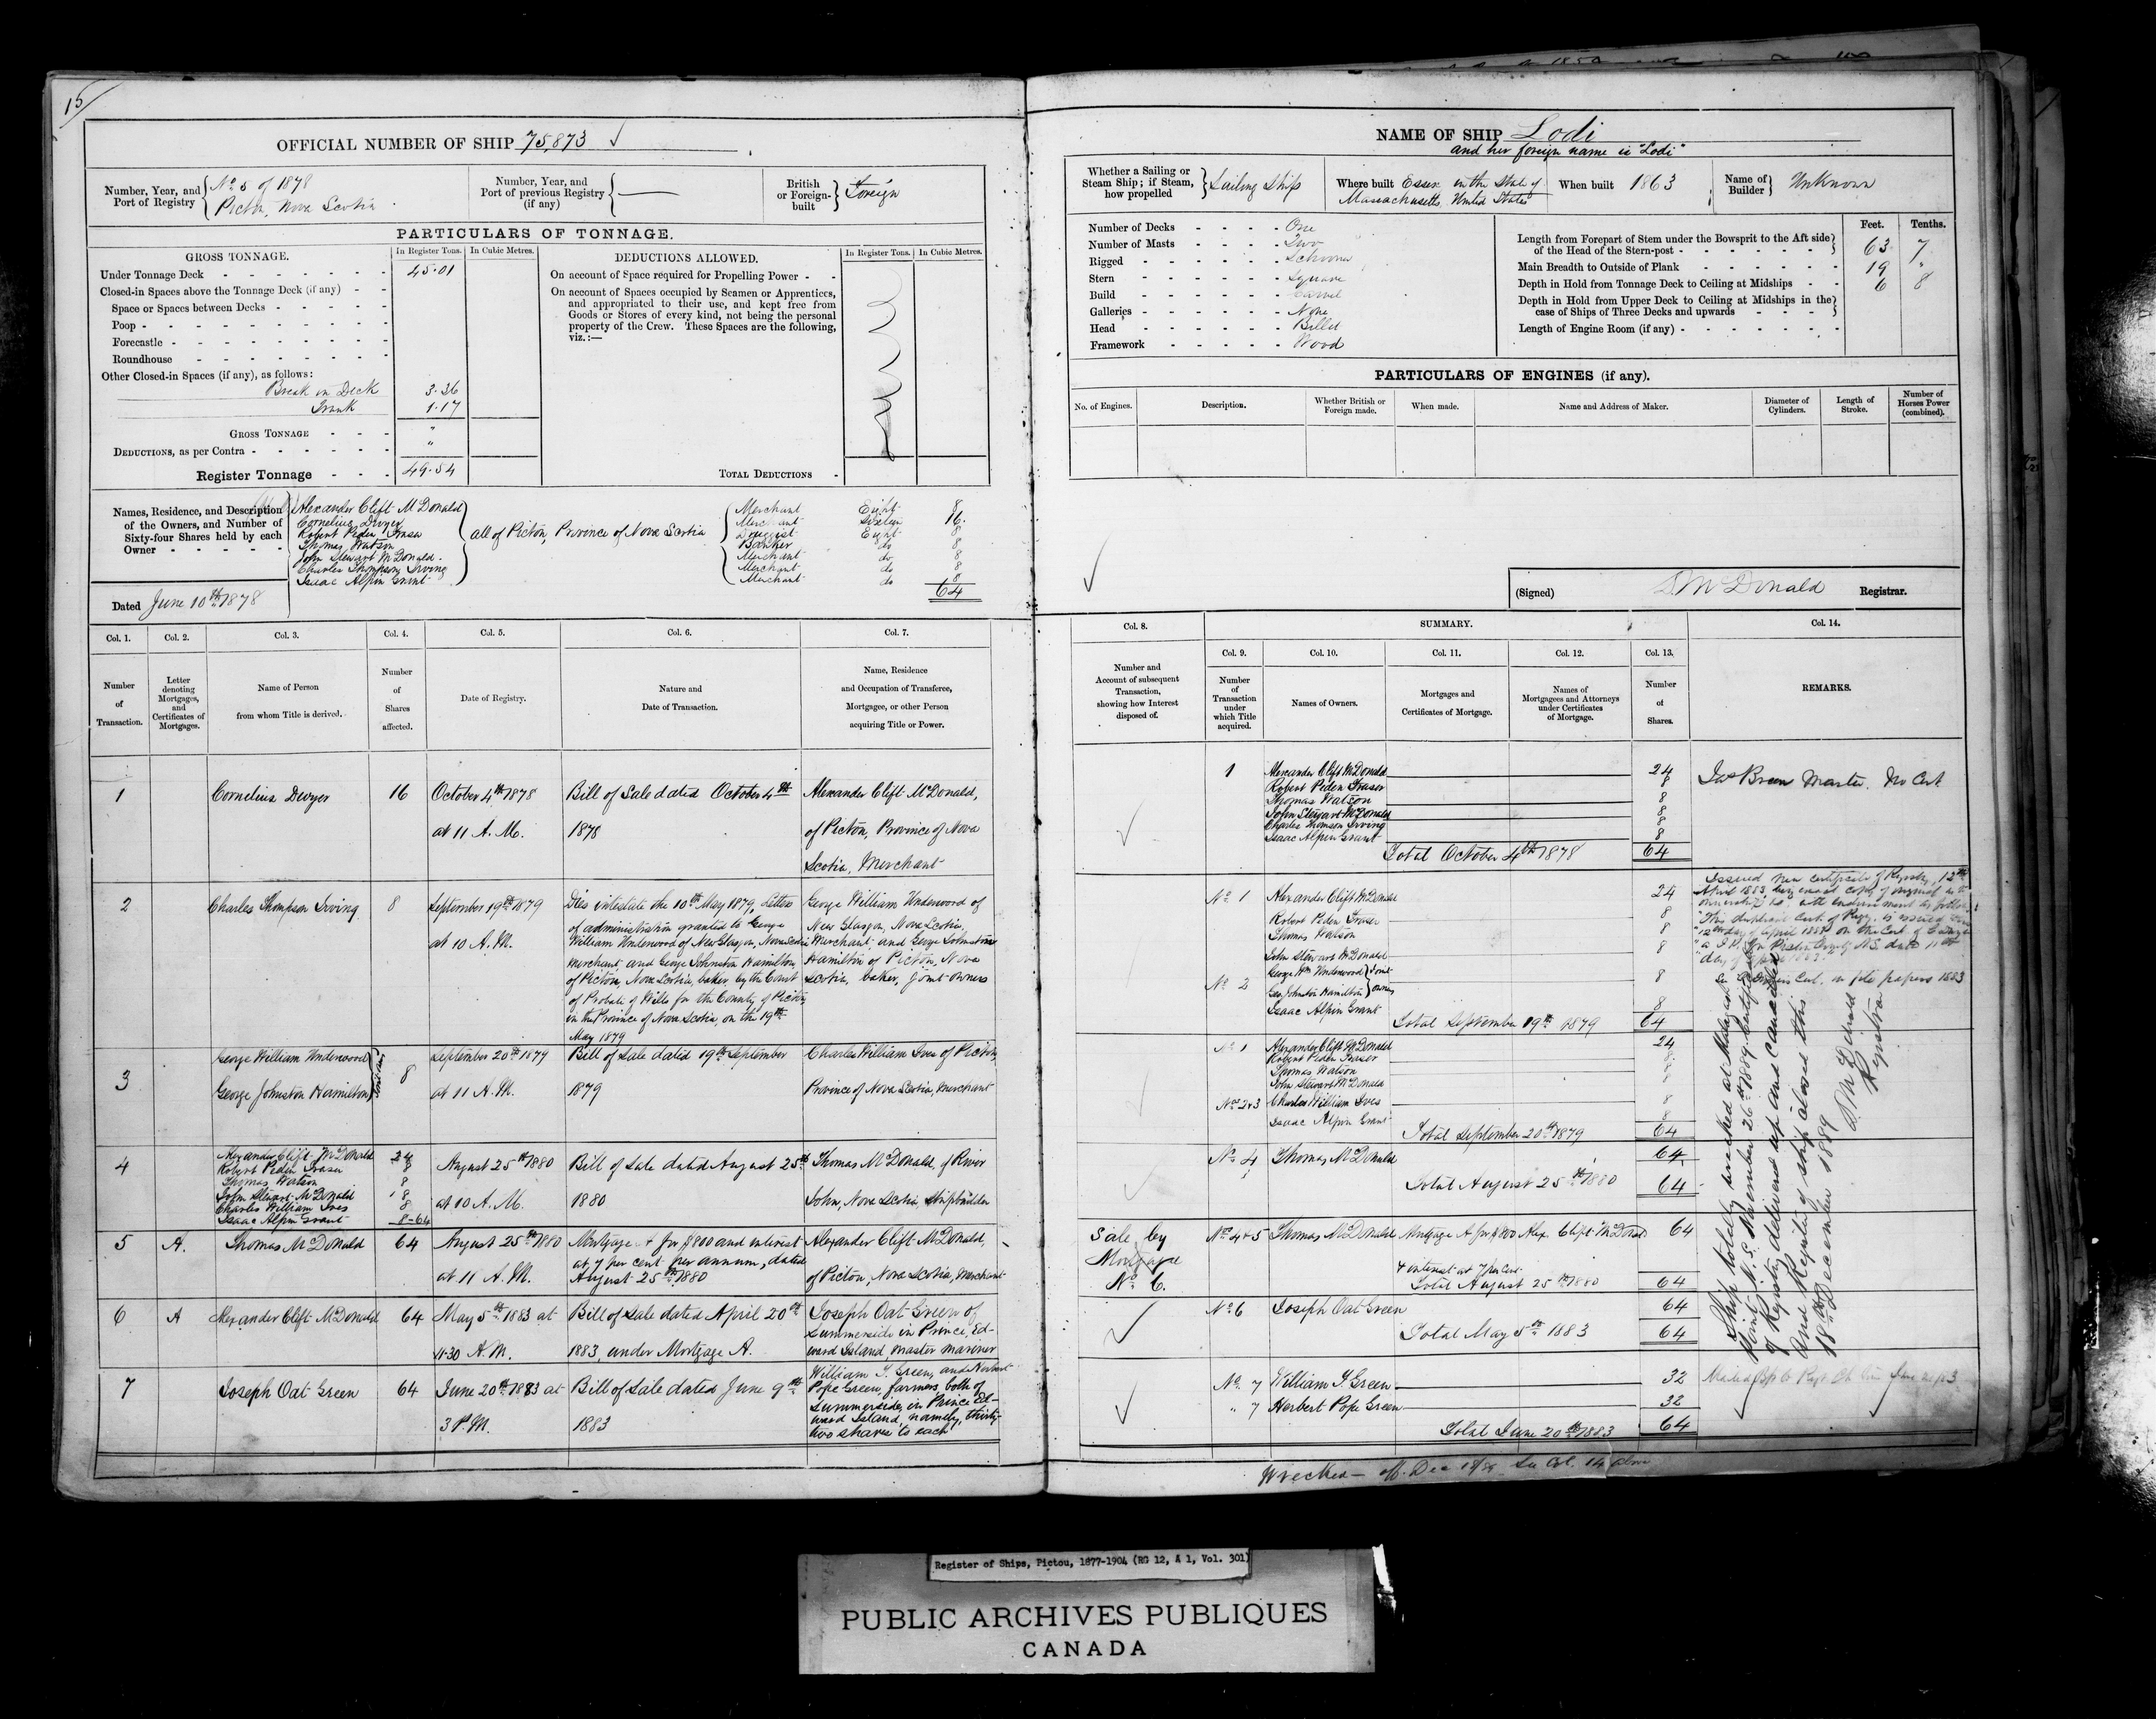 15/
OFFICIAL NUMBER OF SHIP 75,873 ✓
Number, Year, and Port of Registry { No. 5 of 1878 Pictou, Nova Scotia
Number, Year, and Port of previous Registry (if any) { —
British or Foreign-built } Foreign
PARTICULARS OF TONNAGE.
GROSS TONNAGE. In Register Tons. In Cubic Metres.
Under Tonnage Deck - 45.01
Closed-in Spaces above the Tonnage Deck (if any) - -
Space or Spaces between Decks -
Poop -
Forecastle -
Roundhouse -
Other Closed-in Spaces (if any), as follows:
Break in Deck 3.36
Trunk 1.17
GROSS TONNAGE - - - "
DEDUCTIONS, as per Contra - "
Register Tonnage - - - 49.54
DEDUCTIONS ALLOWED. In Register Tons. In Cubic Metres.
On account of Space required for Propelling Power - -
On account of Spaces occupied by Seamen or Apprentices,
and appropriated to their use, and kept free from
Goods or Stores of every kind, not being the personal
property of the Crew. These Spaces are the following,
viz.:—
TOTAL DEDUCTIONS -
Names, Residence, and Description
of the Owners, and Number of
Sixty-four Shares held by each
Owner - - - - -
Alexander Clift McDonald Merchant Eight 8
Cornelius Dwyer Merchant Sixteen 16
Robert Peden Fraser Druggist Eight 8
Thomas Watson Banker do 8
John Stewart McDonald Merchant do 8
Charles Thompson Irving Merchant do 8
Isaac Alpin Grant Merchant do 8
all of Pictou, Province of Nova Scotia
64
Dated June 10th 1878
Col. 1. Col. 2. Col. 3. Col. 4. Col. 5. Col. 6. Col. 7.
Number of Transaction.
Letter denoting Mortgages, and Certificates of Mortgages.
Name of Person from whom Title is derived.
Number of Shares affected.
Date of Registry.
Nature and Date of Transaction.
Name, Residence and Occupation of Transferee, Mortgagee, or other Person acquiring Title or Power.
1 Cornelius Dwyer 16 October 4th 1878 Bill of Sale dated October 4th Alexander Clift McDonald,
at 11 A.M. 1878 of Pictou, Province of Nova
Scotia, Merchant
2 Charles Thompson Irving 8 September 19th 1879
at 10 A.M.
Dies intestate the 10th May 1879, Letters
of administration granted to George
William Underwood of New Glasgow, Nova Scotia
Merchant, and George Johnston Hamilton,
of Pictou, Nova Scotia, baker, by the Court
of Probate of Wills for the County of Pictou
in the Province of Nova Scotia, on the 19th
May 1879
George William Underwood of
New Glasgow, Nova Scotia,
Merchant, and George Johnstone
Hamilton of Pictou, Nova
Scotia, baker, joint owners
3 George William Underwood
George Johnston Hamilton 8
September 20th 1879 Bill of Sale dated 19th September Charles William Ives of Pictou
at 11 A.M. 1879 Province of Nova Scotia, Merchant
4 Alexander Clift McDonald 24
Robert Peden Fraser 8
Thomas Watson 8
John Stewart McDonald 8
Charles William Ives 8
Isaac Alpin Grant 8-64
August 25th 1880 Bill of Sale dated August 25th Thomas McDonald, of River
at 10 A.M. 1880 John, Nova Scotia, Shipbuilder
5 A. Thomas McDonald 64 August 25th 1880
at 11 A.M.
Mortgage A for $800 and interest
at 7 per cent per annum, dated
August 25th 1880
Alexander Clift McDonald,
of Pictou, Nova Scotia, Merchant
6 A Alexander Clift McDonald 64 May 5th 1883 at
11.30 A.M.
Bill of Sale dated April 20th
1883, under Mortgage A.
Joseph Oat Green of
Summerside in Prince Ed-
ward Island, master mariner
7 Joseph Oat Green 64 June 20th 1883 at
3 P.M.
Bill of Sale dated June 9th
1883
William T. Green, and Herbert
Pope Green, farmers, both of
Summerside, in Prince Ed-
ward Island, namely, thirty-
two shares to each
NAME OF SHIP Lodi
and her foreign name is "Lodi"
Whether a Sailing or Steam Ship; if Steam, how propelled } Sailing Ship
Where built Essex in the State of Massachusetts, United States
When built 1863
Name of Builder } Unknown
Number of Decks - - - - One
Number of Masts - - - - Two
Rigged - - - - - Schooner
Stern - - - - - Square
Build - - - - - Carvel
Galleries - - - - - None
Head - - - - - Billet
Framework - - - - - Wood
Feet. Tenths.
Length from Forepart of Stem under the Bowsprit to the Aft side of the Head of the Stern-post - 63 7
Main Breadth to Outside of Plank 19 "
Depth in Hold from Tonnage Deck to Ceiling at Midships - - 6 8
Depth in Hold from Upper Deck to Ceiling at Midships in the case of Ships of Three Decks and upwards
Length of Engine Room (if any) -
PARTICULARS OF ENGINES (if any).
No. of Engines. Description. Whether British or Foreign made. When made. Name and Address of Maker. Diameter of Cylinders. Length of Stroke. Number of Horses Power (combined).
(Signed) D. McDonald Registrar.
Col. 8. SUMMARY. Col. 14.
Col. 9. Col. 10. Col. 11. Col. 12. Col. 13.
Number and Account of subsequent Transaction, showing how Interest disposed of.
Number of Transaction under which Title acquired.
Names of Owners.
Mortgages and Certificates of Mortgage.
Names of Mortgagees and Attorneys under Certificates of Mortgage.
Number of Shares.
REMARKS.
1 Alexander Clift McDonald 24
Robert Peden Fraser 8
Thomas Watson 8
John Stewart McDonald 8
Charles Thomson Irving 8
Isaac Alpin Grant 8
Total October 4th 1878 64
Jas Breen Master. No Cert
No. 1 Alexander Clift McDonald 24
Robert Peden Fraser 8
Thomas Watson 8
John Stewart McDonald 8
No. 2 George Wm Underwood } Joint
Geo. Johnston Hamilton } owners 8
Isaac Alpin Grant 8
Total September 19th 1879 64
Issued new certificate of Registry, 12th
April 1883
No. 1 Alexander Clift McDonald 24
Robert Peden Fraser 8
Thomas Watson 8
John Stewart McDonald 8
Nos 2&3 Charles William Ives 8
Isaac Alpin Grant 8
Total September 20th 1879 64
No. 4 Thomas McDonald 64
Total August 25th 1880 64
Sale by
Mortgage
No. 6.
Nos 4&5 Thomas McDonald Mortgage A for $800 Alex. Clift McDonald 64
& interest at 7 per cent.
Total August 25th 1880 64
No. 6 Joseph Oat Green 64
Total May 5th 1883 64
No. 7 William T. Green 32
" 7 Herbert Pope Green 32
Total June 20th 1883 64
Ship totally wrecked at Malagash
Point, N.S. November 26th 1889. Certificate
of Registry delivered up and cancelled
and Registry of ship closed this
18th December 1889
D. McDonald
Registrar
Wrecked — Dec 18/89 See Col. 14 above
Register of Ships, Pictou, 1877-1904 (RG 12, A 1, Vol. 301)
PUBLIC ARCHIVES PUBLIQUES
CANADA